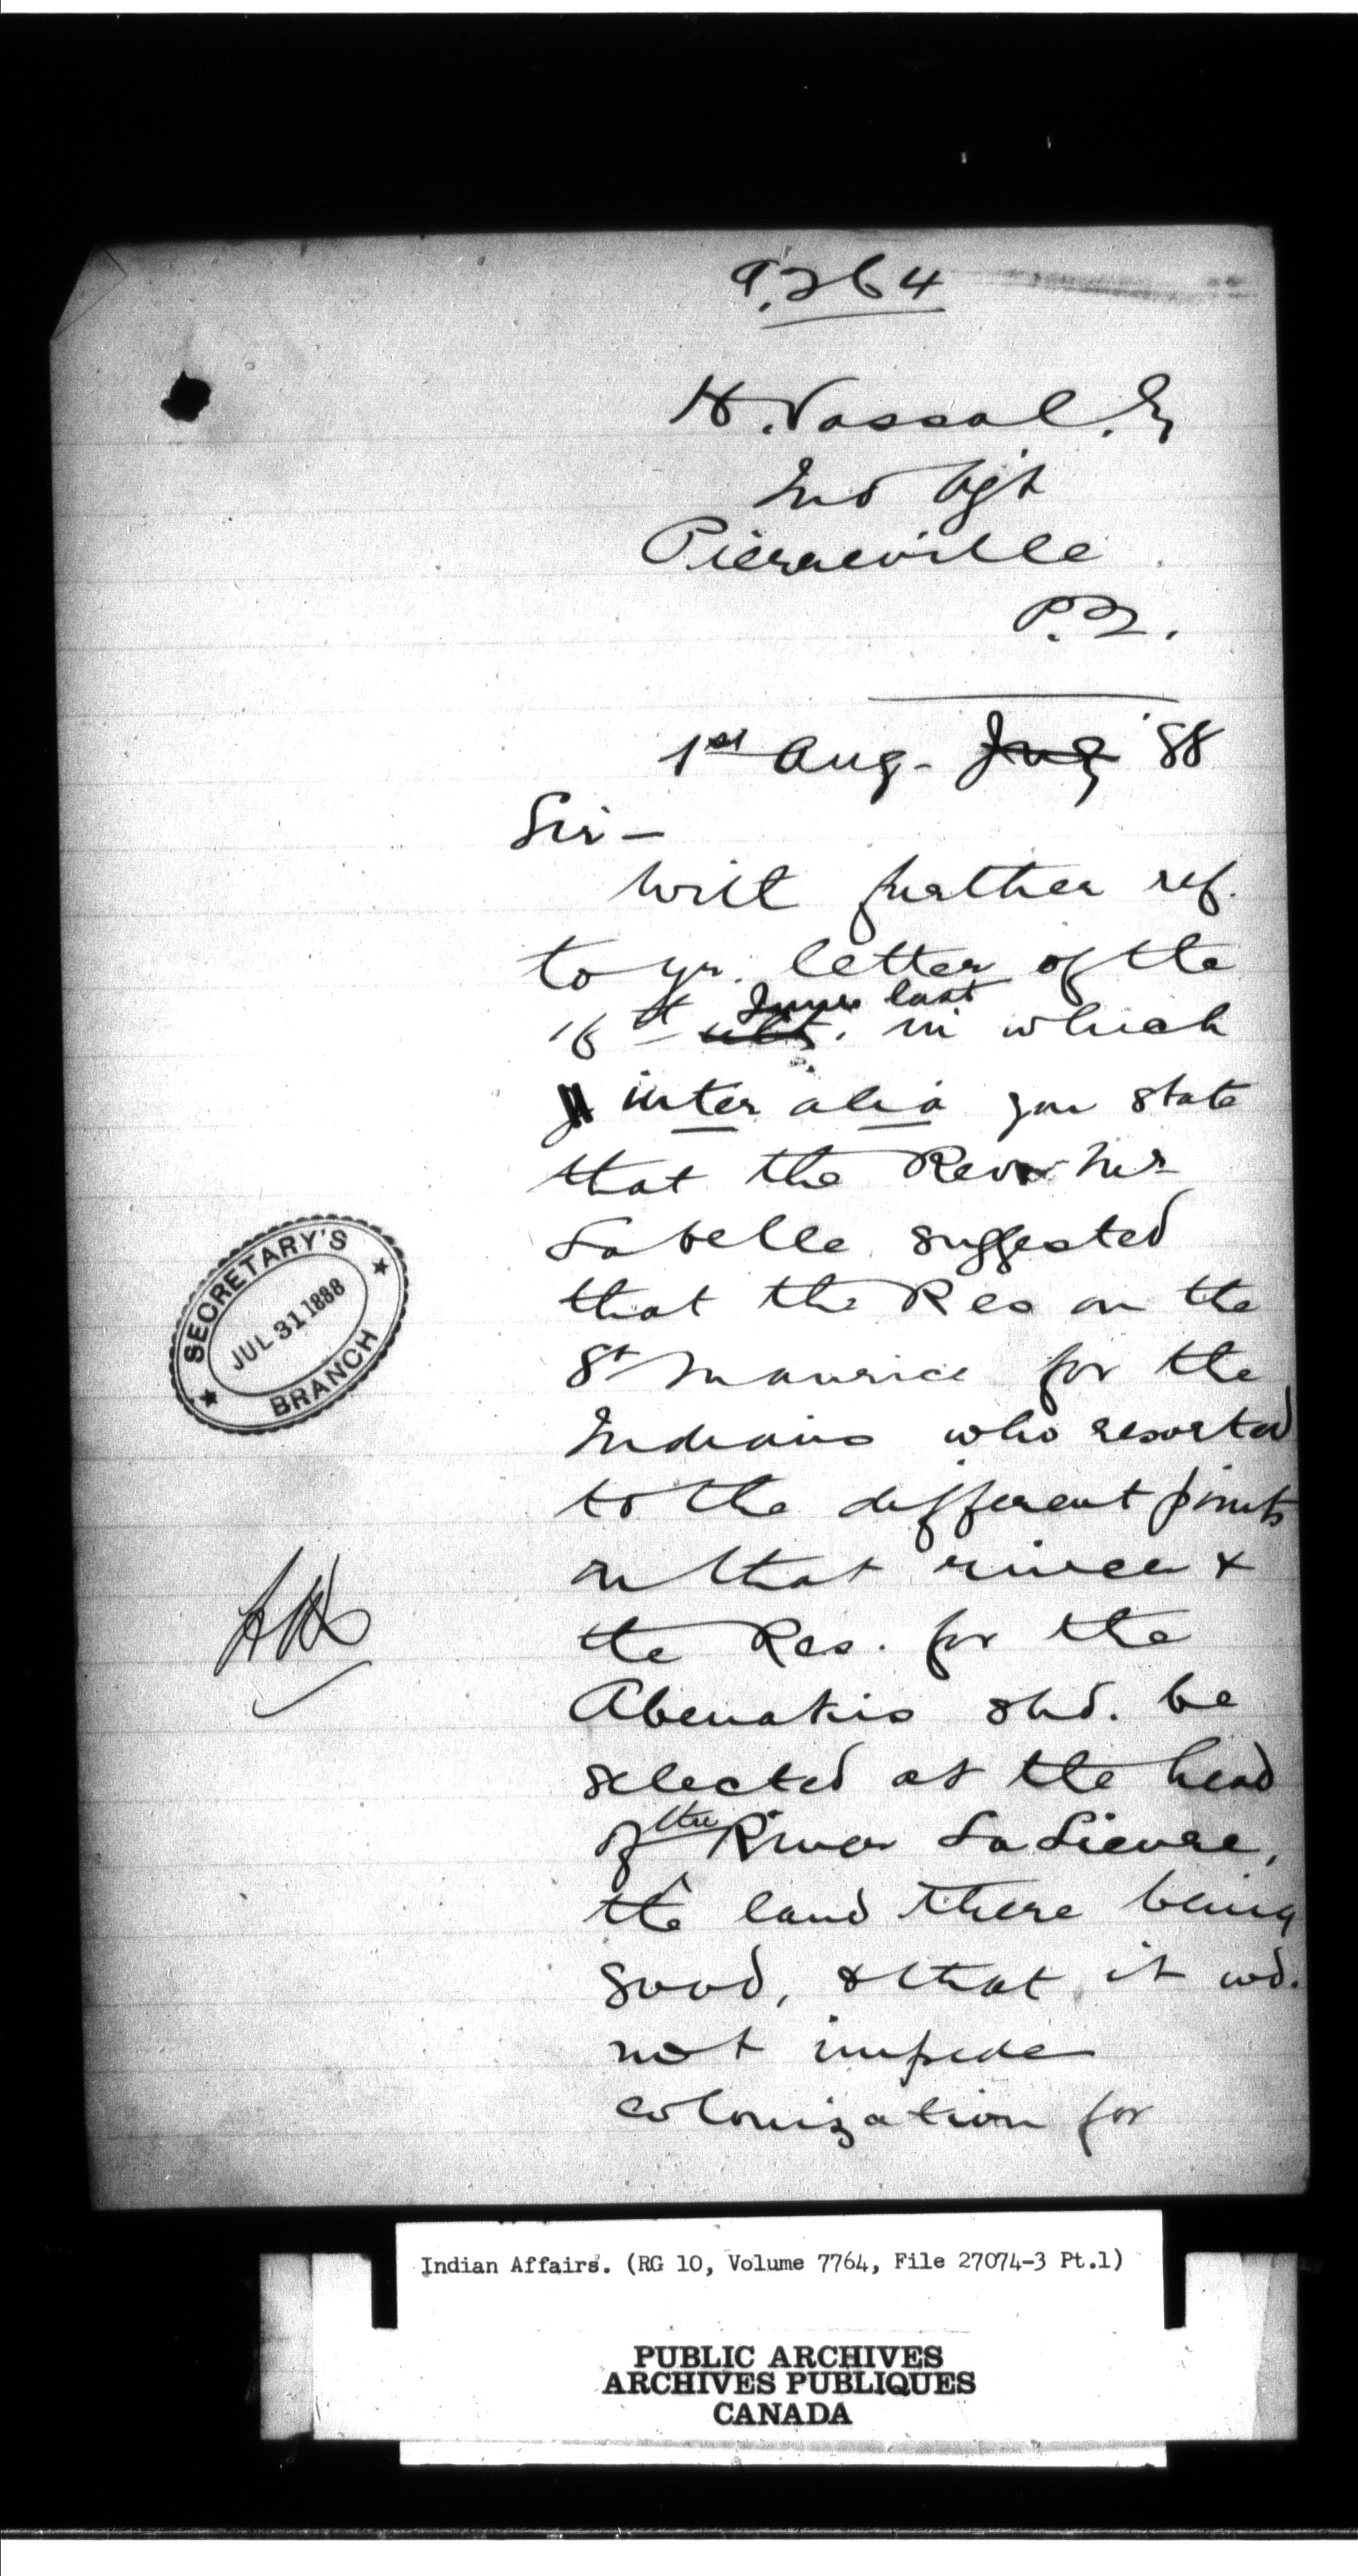 9.264
H. Vassal. Eq
Ind Agt
Pierreville
P.Q.
1st Aug. July '88
Sir —
With further ref.
to yr. letter of the
June last
16th ult. in which
inter alia you state
that the Rev. Mr
Labelle suggested
that the Res on the
St Maurice for the
Indians who resorted
to the different points
on that river &
the Res. for the
Abenakis shd. be
selected at the head
of the River La Lievre,
the land there being
good, & that it wd.
not impede
colonization for
SECRETARY'S
JUL 31 1888
BRANCH
Indian Affairs. (RG 10, Volume 7764, File 27074-3 Pt.1)
PUBLIC ARCHIVES
ARCHIVES PUBLIQUES
CANADA